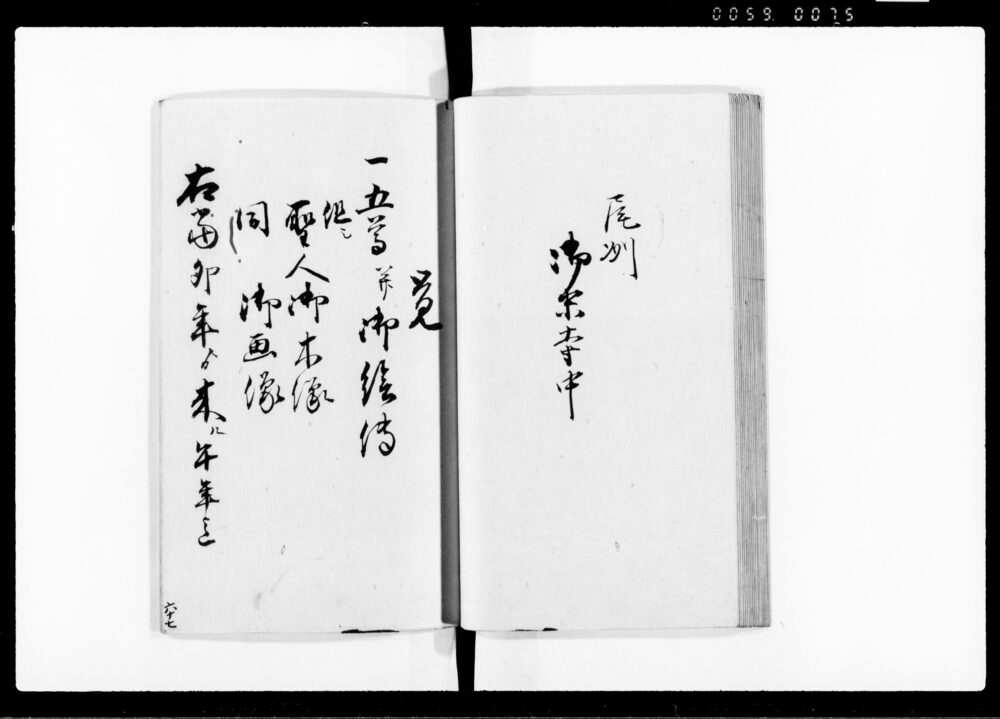 0059. 0075
尾州
御末寺中
覚
一五尊并御絵伝
但シ
聖人御木像
同 御画像
右当卯年ゟ来ル午年迄
六十七